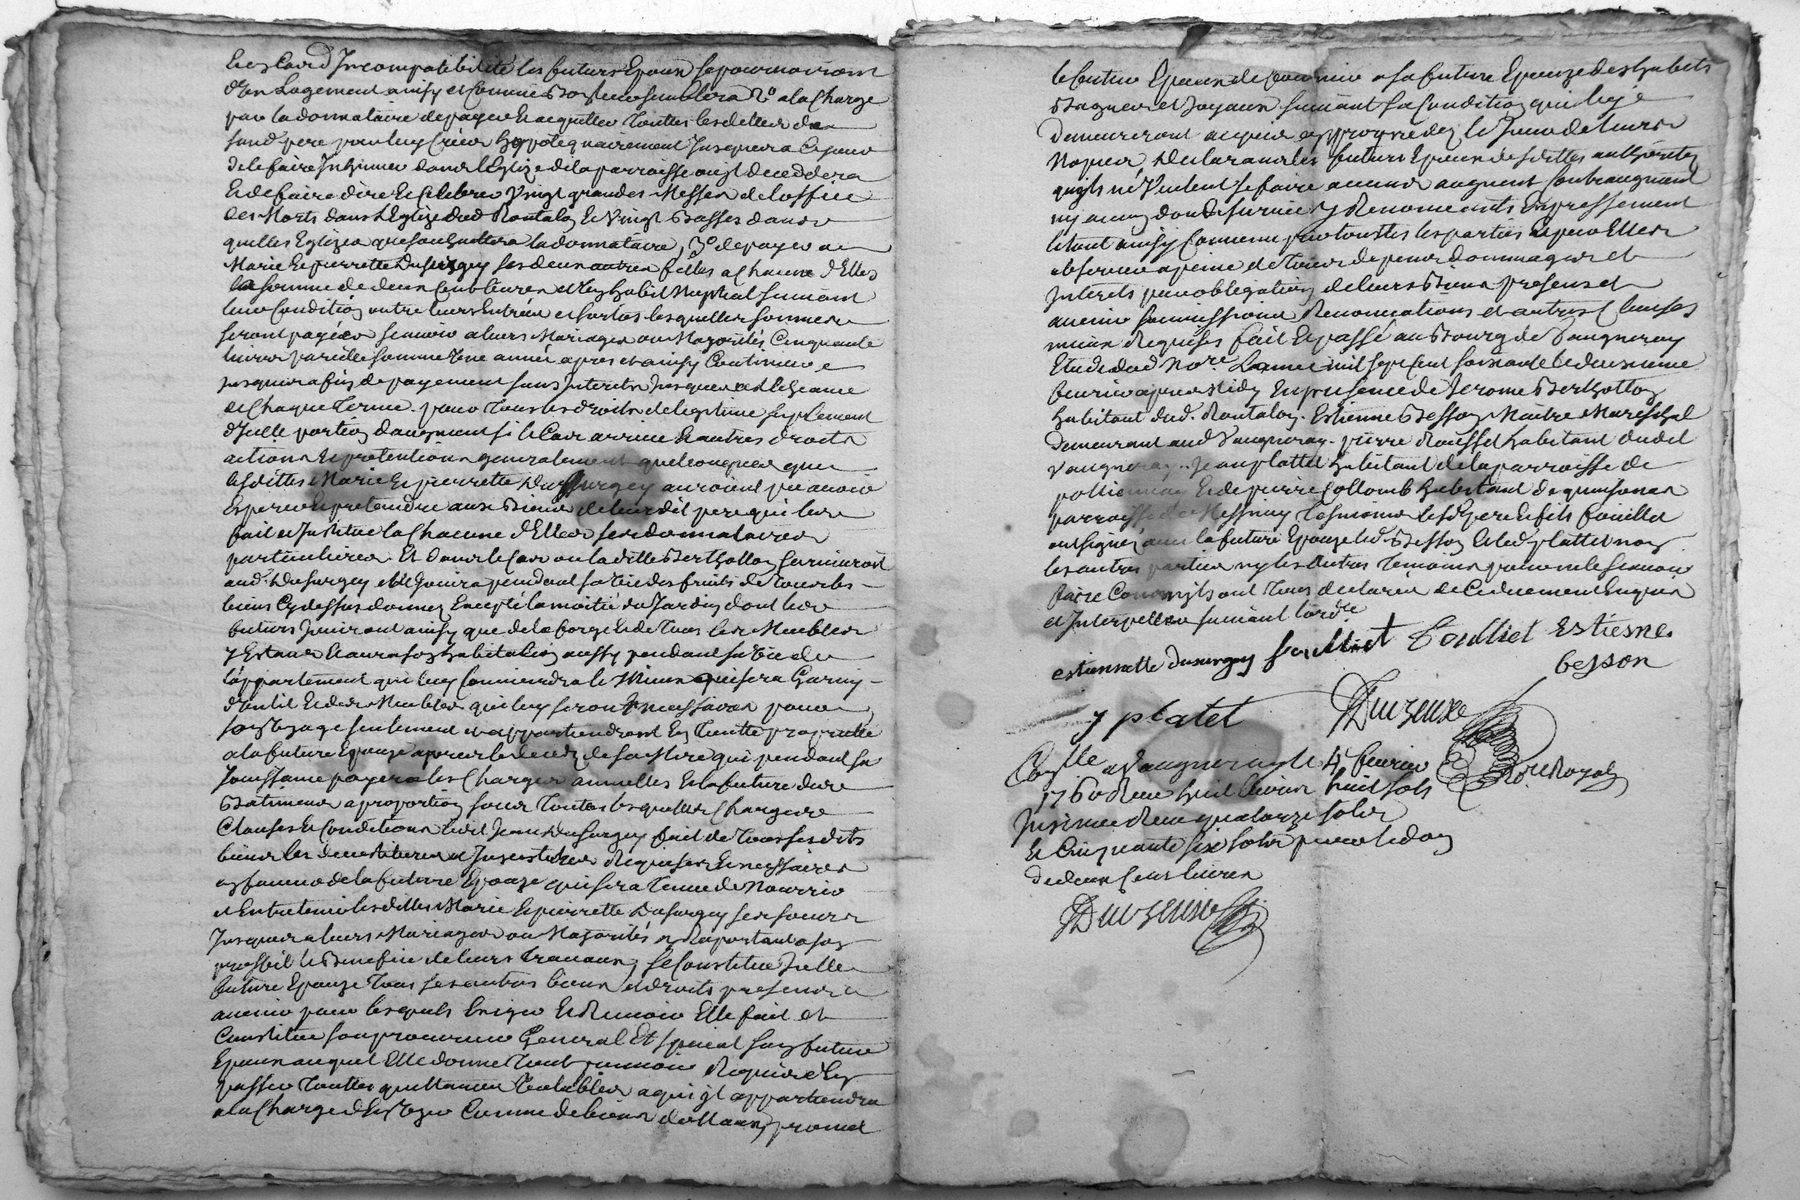 les cas d'Incompatibilité les futurs Epoux se pourvoiront
d'un Logement ainsy et comme bon leur semblera 2o a la Charge
par la donnataire de payer et acquitter Touttes les dettes de
sond. pere
de le faire Inhumer dans l'Eglize de la parroisse ou il deceddera
Et de faire dire et Celebrer Vingt grandes Messes de l'office
des Morts dans L'Eglize dud Rontalon et Vingt Basses dans
quelles Eglizes que souhaittera la donnataire, 3o de payer a
Marie Et pierrette Dusurgey ses deux autres filles a chacune d'Elles
la somme de deux Cent livres et leur habit Nuptial suivant
leur Condition outre leurs Entrées et sorties lesquelles sommes
seront payées scavoir a leurs Mariages ou Majorités Cinquante
livres pareille somme Une année apres et ainsy Continuer
jusques a fin de payement sans Interets jusques a l'Echeance
de Chaque Terme. pour Tous les droits de legitime suplement
d'Icelle portion d'augment si le Cas arrive et autres droits
actions Et pretentions generalement quelconques que
lesdittes Marie Et pierrette Dusurgey auroient pu avoir
Esperer et pretendre aux Biens de leurdit pere qui leur
fait et Institue la Chacune d'Elles ses donnataires
particulieres. Et dans le Cas ou laditte Berthollon survivroit
aud. Dusurgey elle Jouira pendant sa Vie des fruits de tous les
biens Cy dessus donnez Excepté la moitié du Jardin dont les
futurs Jouiront ainsy que de la forge Et de Tous les Meubles
y Estants Et aura son habitation aussy pendant sa Vie de
l'appartement qui luy Conviendra le Mieux qui sera Garny
d'un lit Et des Meubles qui luy seront Necessaires pour
son Usage seulement et appartiendront En Toutte proprieté
a la future Epouze apres le deceds de sa Mere qui pendant sa
Jouissance payera les Charges annuelles Et la future des
Batiments a proportion sous Touttes lesquelles Charges
Clauses et Conditions ledit Jean Dusurgey fait de Tous sesdits
biens les devestitures et Investitures Requises Et necessaires
en faveur de la future Epouze qui sera Tenue de Nourrir
et Entretenir lesdittes Marie Et pierrette Dusurgey ses soeurs
Jusques a leurs Mariages ou Majorités en Raportant a son
proffit le Benefice de leurs Travaux, se Constitue Icelle
future Epouze Tous ses autres biens et droits presents et
avenir pour lesquels Exiger Et Recevoir Elle fait et
Constitue son procureur General Et special son futur
Epoux auquel Elle donne Tout pouvoir Requis d'En
passer Touttes quittances Valables a qui il appartiendra
a la Charge d'En User Comme de biens dottaux, promet
le futur Epoux de fournir a sa future Epouze des habits
Bagues et Joyaux suivant sa Condition qui luy
demeureront acquis en propre dez le Jour de leurs
Nopces Declarants les futurs Epoux desdittes authoritez
qu'ils ne Veulent se faire aucuns augment Contraugment
ny aucun don de survie y Renonceants Expressement
le tout ainsy Convenu par touttes les parties Et pour Elles
observer a peine de Tous depens dommages et
Interets par obligation de leurs Biens presens et
avenir soumissions Renonciations et autres Clauses
mieux Requises fait Et passé au Bourg de Vaugneray
Etude dud No.re L'an mil sept cent soixante le deuxieme
fevrier apres Midy En presence de Jerome Berthollon
habitant dud. Rontalon. Estienne Besson Maitre Mareschal
demeurant aud Vaugneray. pierre Rousset habitant dudit
Vaugneray. Jean plattet habitant de la parroisse de
pollionnay Et de pierre Collomb habitant de
parroisse de Messimy Temoins lesd pere et fils Coullet
ont signé avec la future Epouze led Besson Et led plattet non
les autres parties ny les autres Temoins pour ne le scavoir
faire Comme ils ont Tous declarés de Ce duement Enquis
et Interpellés suivant l'ord.ce
estiennette dusurgey Coulliet Coulliet Estiesne
besson
y platet
Duvzeuxe
No.re Royal
C.lle a Vaugneray le 4 fevrier
1760 Reçu huit livres huit sols
Insinué Reçu quatorze sols
Et Cinquante six sols pour le don
de deux Cent livres
Duvzeuxe